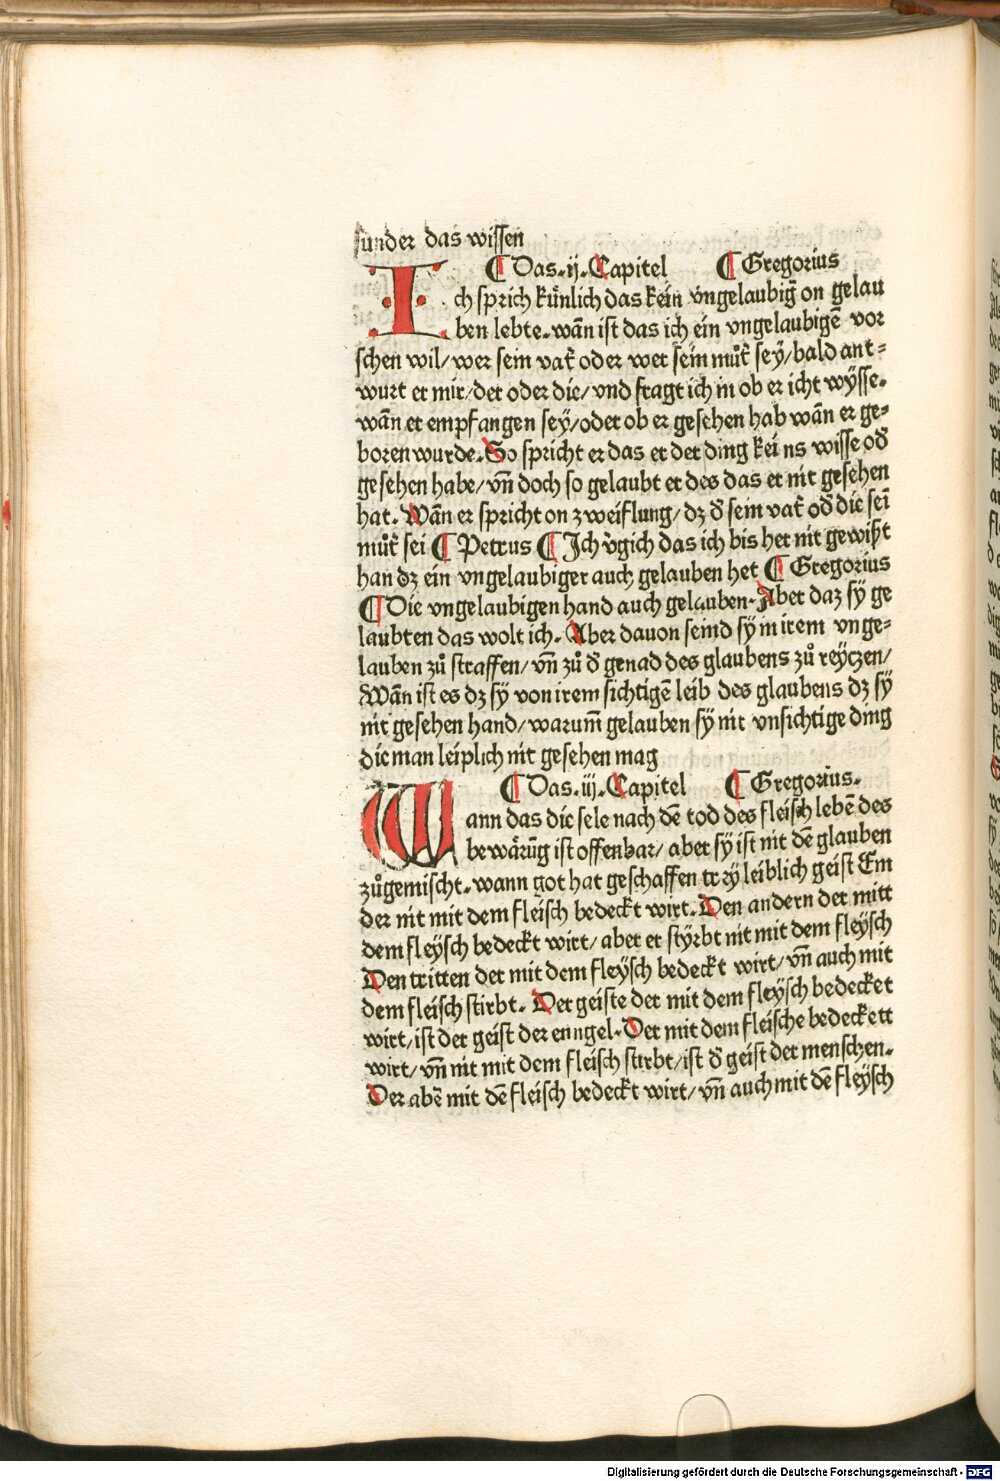 sunder das wissen
¶ Das .ij. Capitel ¶ Gregorius
Ich sprich künlich das kein vngelaubig̃ on gelau
ben lebte. wañ ist das ich ein vngelaubigẽ vor
schen wil/ wer sein vat̃ oder wer sein můt̃ seÿ/ bald ant⸗
wurt er mir/ der oder die/ vnd fragt ich in ob er icht wÿsse.
wañ er empfangen seÿ/ oder ob er gesehen hab wañ er ge⸗
boren wurde. So spricht er das er der ding kei ns wisse od̕
gesehen habe/ vñ doch so gelaubt er des das er nit gesehen
hat. Wañ er spricht on zweiflung/ dz d̕ sein vat̃ od̕ die sei̅
můt̃ sei ¶ Petrus ¶ Ich v̕gich das ich bis her nit gewißt
han dz ein vngelaubiger auch gelauben het ¶ Gregorius
¶ Die vngelaubigen hand auch gelauben. Aber daz sÿ ge
laubten das wolt ich. Aber dauon seind sÿ in irem vnge⸗
lauben zů straffen/ vñ zů d̕ genad des glaubens zů reÿczen/
Wañ ist es dz sÿ von irem sichtigẽ leib des glaubens dz sÿ
nit gesehen hand/ warum̃ gelauben sÿ nit vnsichtige ding
die man leiplich nit gesehen mag
¶ Das .iij. Capitel ¶ Gregorius.
Wann das die sele nach dẽ tod des fleisch lebẽ des
bewärũg ist offenbar/ aber sÿ ist nit dẽ glauben
zůgemischt. wann got hat geschaffen trÿ leiblich geist Em
der nit mit dem fleisch bedeckt wirt. Den andern der mitt
dem fleÿsch bedeckt wirt/ aber er stÿrbt nit mit dem fleÿsch
Den tritten der mit dem fleÿsch bedeckt wirt/ vñ auch mit
dem fleisch stirbt. Der geiste der mit dem fleÿsch bedecket
wirt/ ist der geist der enngel. Der mit dem fleische bedeckett
wirt/ vñ nit mit dem fleisch stirbt/ ist d̕ geist der menschen.
Der abẽ mit dẽ fleisch bedeckt wirt/ vñ auch mit dẽ fleÿsch
Digitalisierung gefördert durch die Deutsche Forschungsgemeinschaft - DFG